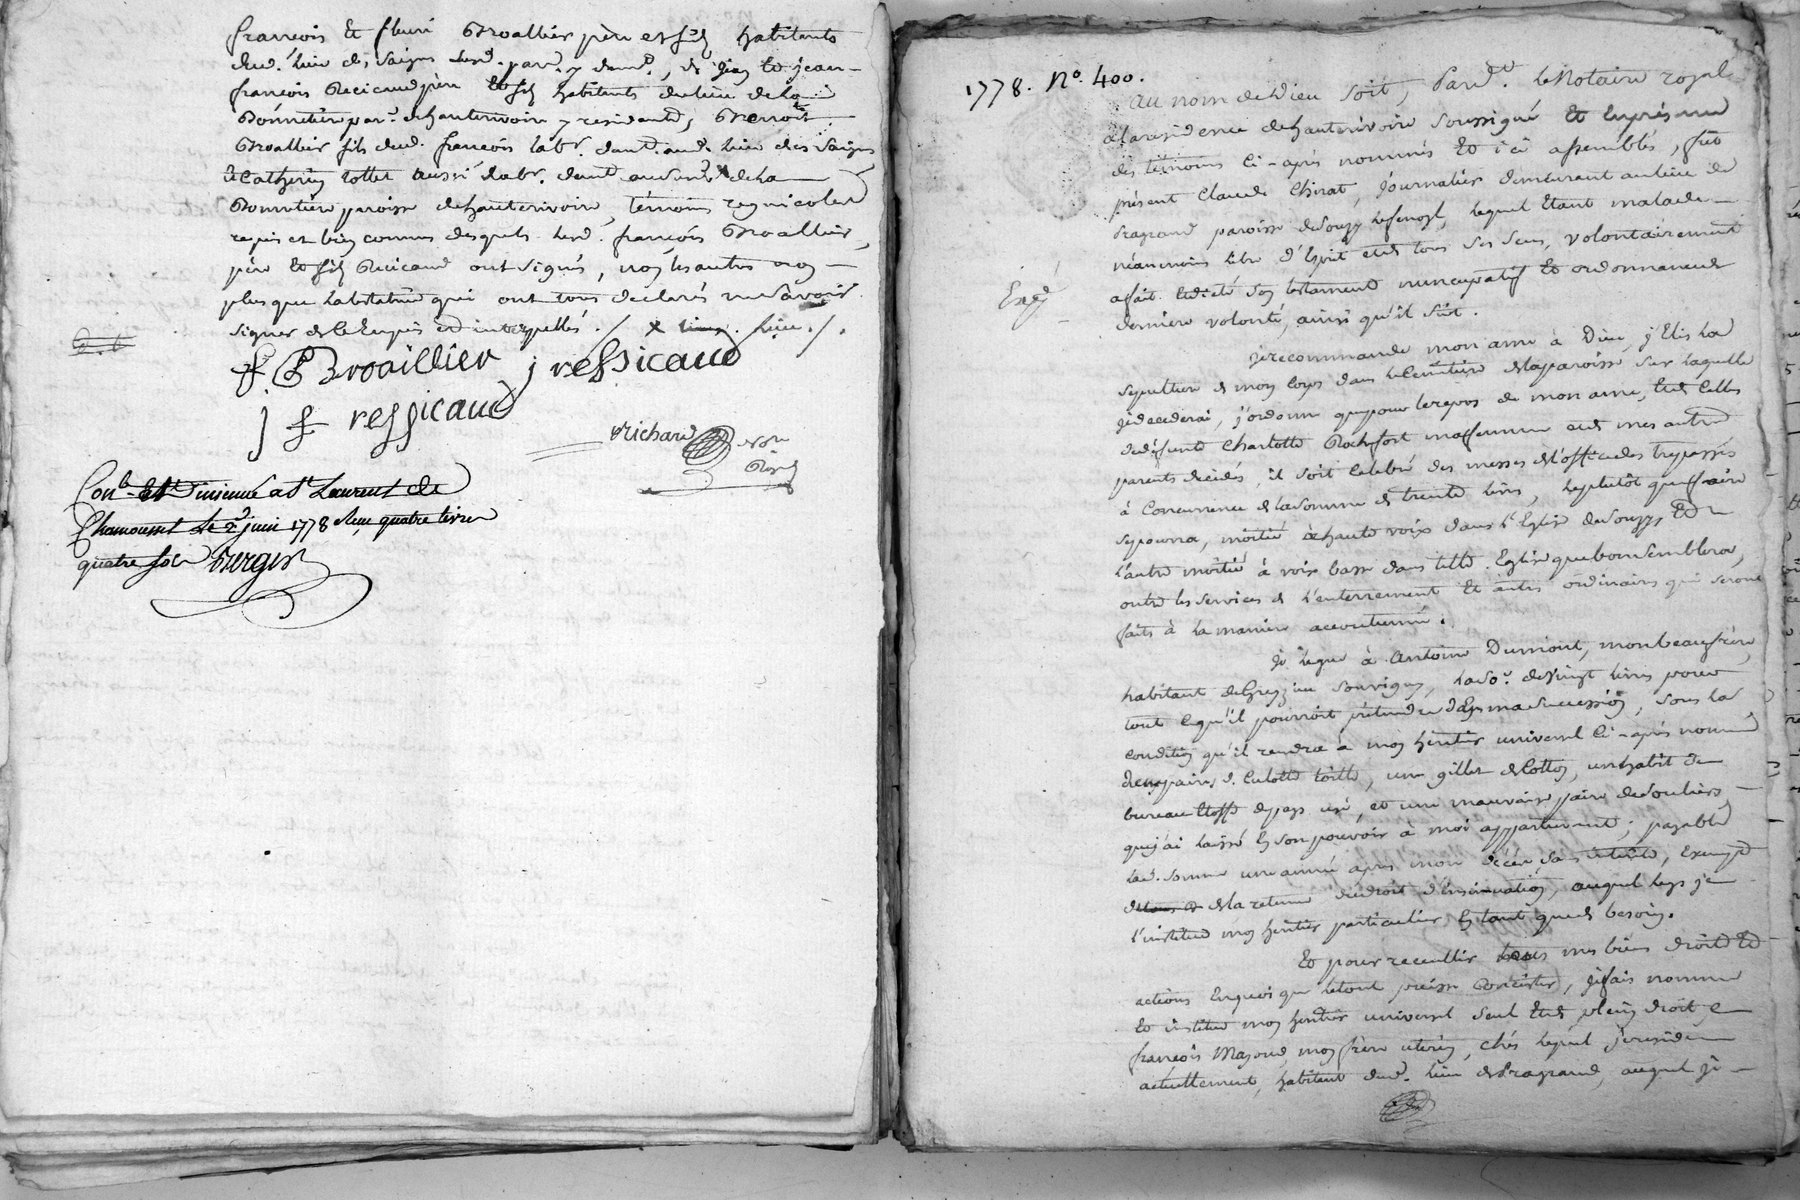 françois et fleuri Broallier père et fils habitants
dud. lieu des Saignes lesd. par. y demt., de Jean et jean-
françois Recicaud père et fils habitants du lieu de la
Bonnetière par. d'hauterivoire y résidents, Benoit
Broallier fils dud. françois labr. demt. aud. lieu des Saignes
et Catherin rollet aussi labr. demt. audit de la
Bonnetière paroisse d'hauterivoire, témoins regnicoles
requis et bien connus desquels lesd. françois Broallier,
père et fils Recicaud ont signés, non les autres non
plus que la testatrice qui ont tous déclarés ne savoir
signer de ce enquis et interpellés ./. x lieu ./.
f. Broaillier j ressicaud
j f ressicaud
Richard
not.
Royal
Conlé. et insinué a St. Laurent de
Chamousset le 2 juin 1778 Reçu quatre livres
quatre sols Berger
1778. N°. 400.
Au nom de Dieu soit, Pardt. le Notaire royal
a la residence d'hauterivoire soussigné et en présence
des témoins ci-après nommés et ici assemblés, fut
présent Claude Chirat, journalier demeurant au lieu de
Pragrand paroisse de Souzy, lequel étant malade
néanmoins libre d'Esprit et de tous ses sens, volontairement
a fait et dicté son testament nuncupatif et ordonnance de
dernière volonté, ainsi qu'il suit.
Exp.
je recommande mon ame à Dieu, j'Elis la
sepulture de mon Corps dans le Cemitière de la paroisse sur laquelle
je decederai, j'ordonne que pour le repos de mon ame, et de Celles
de défunte Charlotte Rochefort ma femme et de mes autres
parents décédés, il soit Celebré des messes et l'office des trepassés
à Concurrence de la somme de trente livres, le plutôt que faire
se pourra, moitié à haute voix dans l'Eglise de Souzy, et
l'autre moitié à voix basse dans telle Eglise que bon semblera,
outre les services de l'enterrement et autres ordinaires qui seront
faits à la manière accoutumée.
Je legue à Antoine Dumont, mon beaufrère,
habitant de Grezzieu Souvigny, la so. de Vingt livres pour
tout ce qu'il pourroit prétendre dans ma succession, sous la
condition qu'il rendra à mon héritier universel ci-après nommé
une paire de Culotte toille, un gillet de Cotton, un habit de
bureau Etoffe de pays usé, et une mauvaise paire de souliers
que j'ai laissé en son pouvoir à moi appartenant; payable
lad. somme une année après mon décès sans intérêts, exempte
de la retenue du droit d'insinuation, auquel legs je
l'institue mon héritier particulier en tant que de besoin.
Et pour recueillir tous mes biens droits et
actions en quoi que le tout puisse Consister, je fais nomme
et institue mon héritier universel seul et de plein droit
françois Majoud, mon frère utérin, chés lequel je reside
actuellement, habitant dud. lieu de Pragrand, auquel je